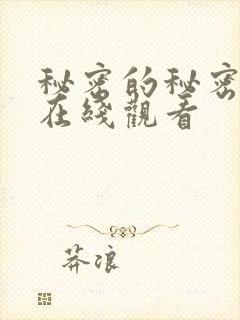 秘密的秘密
在綫觀看
莽浪